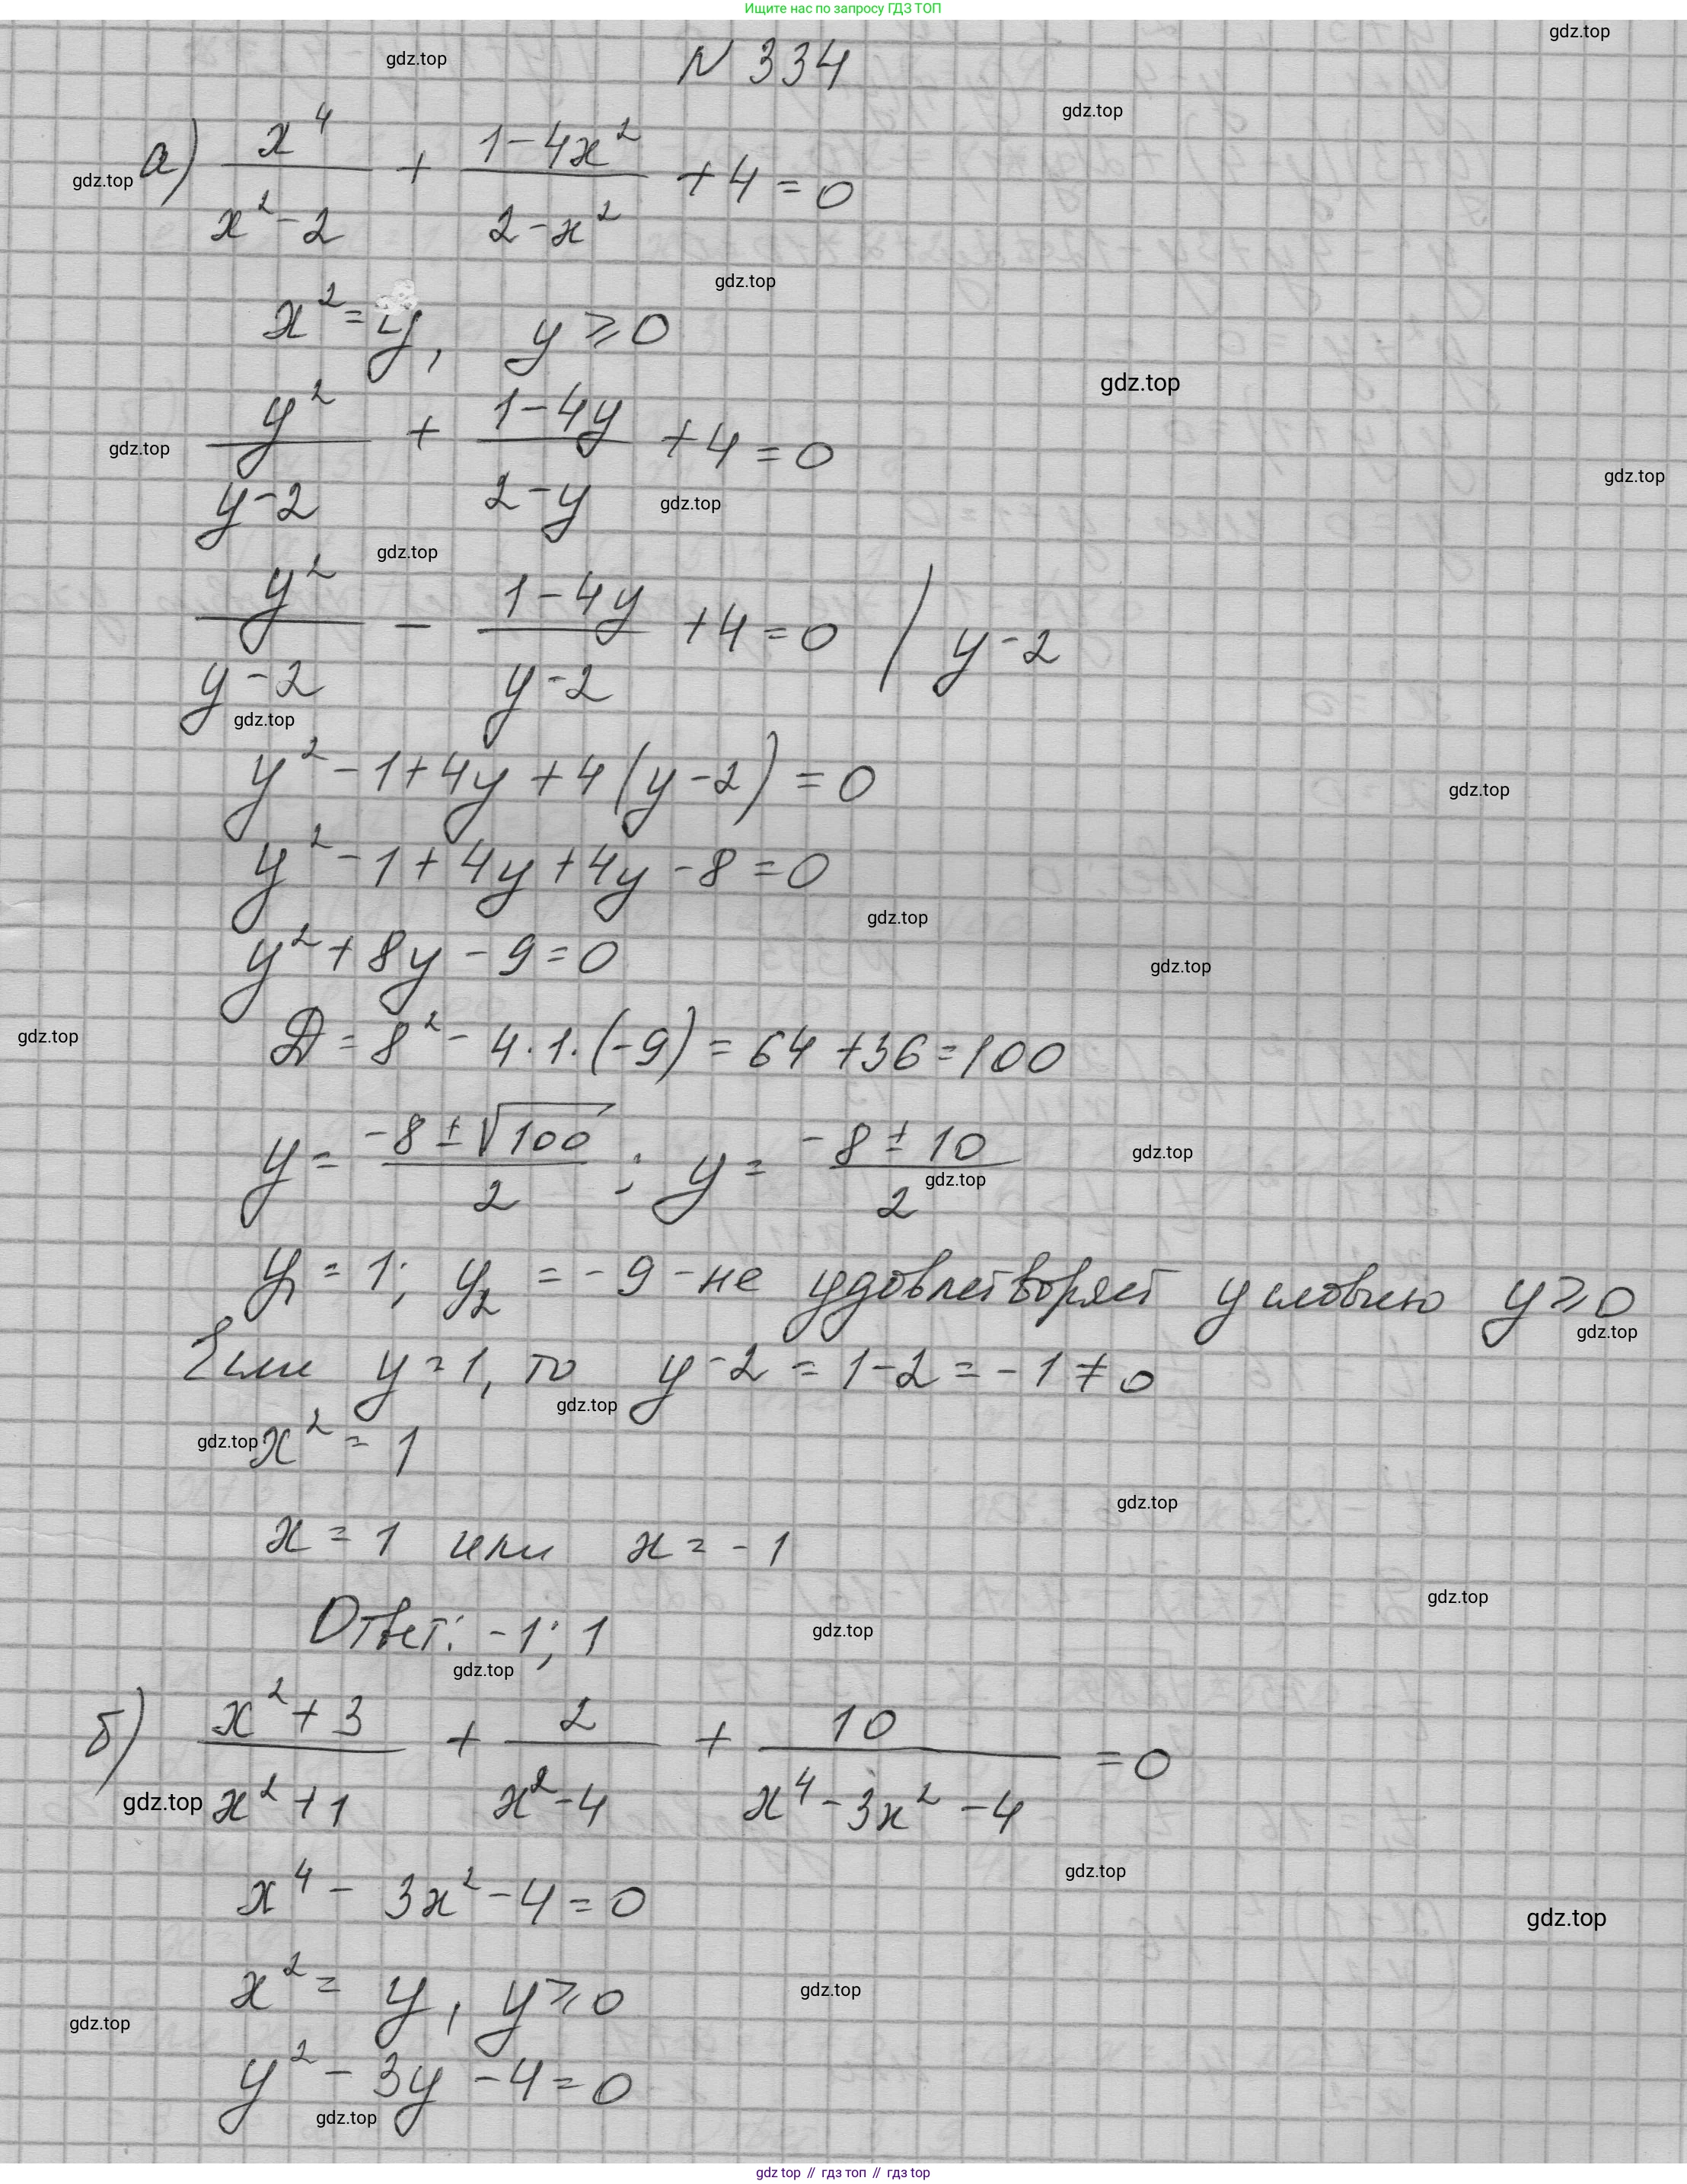 Ищите нас по запросу ГДЗ ТОП
gdz.top
N 334
gdz.top
gdz.top
а) x^4/(x^2-2) + (1-4x^2)/(2-x^2) + 4 = 0
gdz.top
gdz.top
x^2 = y, y ⩾ 0
gdz.top
y^2/(y-2) + (1-4y)/(2-y) + 4 = 0
gdz.top
gdz.top
gdz.top
gdz.top
y^2/(y-2) - (1-4y)/(y-2) + 4 = 0 / y-2
gdz.top
y^2 - 1 + 4y + 4(y-2) = 0
gdz.top
y^2 - 1 + 4y + 4y - 8 = 0
gdz.top
y^2 + 8y - 9 = 0
gdz.top
gdz.top
D = 8^2 - 4·1·(-9) = 64 + 36 = 100
y = (-8 ± √100)/2 ; y = (-8 ± 10)/2
gdz.top
gdz.top
y1 = 1; y2 = -9 - не удовлетворяет условию y ⩾ 0
gdz.top
Если y = 1, то y - 2 = 1 - 2 = -1 ≠ 0
gdz.top
gdz.top
x^2 = 1
gdz.top
x = 1 или x = -1
gdz.top
Ответ: -1; 1
gdz.top
gdz.top
б) (x^2+3)/(x^2+1) + 2/(x^2-4) + 10/(x^4-3x^2-4) = 0
gdz.top
gdz.top
x^4 - 3x^2 - 4 = 0
gdz.top
x^2 = y, y ⩾ 0
gdz.top
gdz.top
y^2 - 3y - 4 = 0
gdz.top
gdz top // гдз топ // гдз top